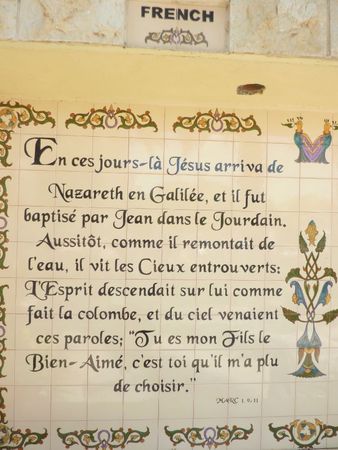 FRENCH
En ces jours-là Jésus arriva de
Nazareth en Galilée, et il fut
baptisé par Jean dans le Jourdain.
Aussitôt, comme il remontait de
l'eau, il vit les Cieux entrouverts:
L'Esprit descendait sur lui comme
fait la colombe, et du ciel venaient
ces paroles; "Tu es mon Fils le
Bien-Aimé, c'est toi qu'il m'a plu
de choisir."
MARC 1. 9. 11